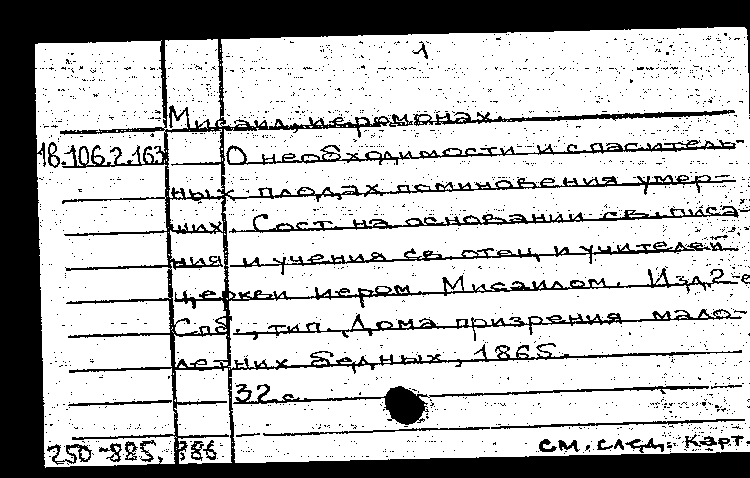 1
Мисаил, иеромонах.
18.106.2.163 О необходимости и спаситель-
ных плодах поминовения умер-
ших. Сост. на основании св. писа
ния и учения св. отец и учителей
церкви иером. Мисаилом. Изд. 2-е
Спб., тип. Дома призрения мало-
летних бедных, 1865.
32 с.
250-885, 886 см. след. карт.